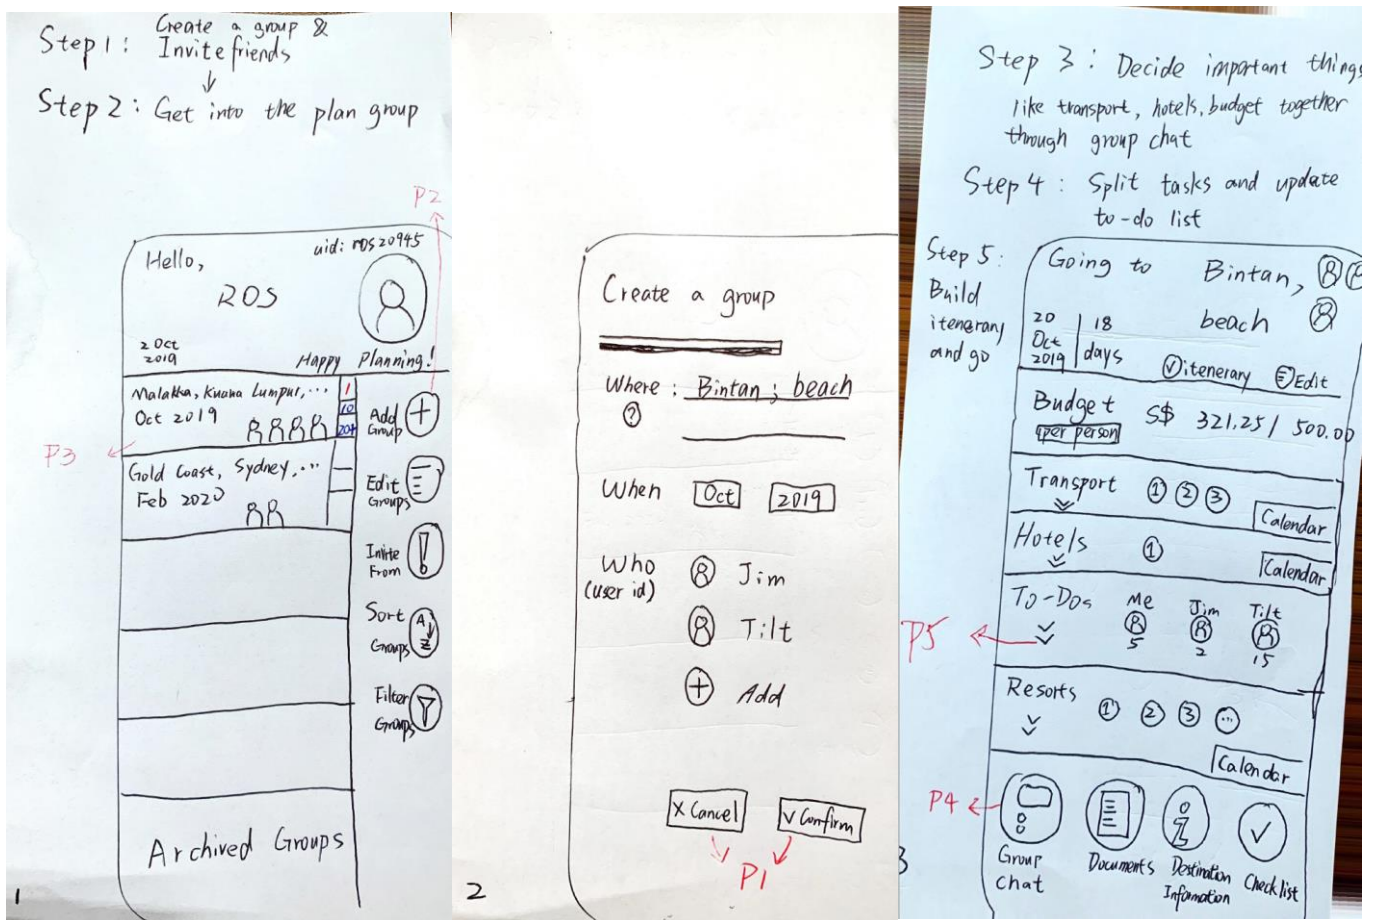 Step 1: Create a group &
Invite friends
↓
Step 2: Get into the plan group
P2
Hello,
uid: ros20945
ROS
2 Oct
2019
Happy Planning!
Malakka, Kuana Lumpur, ...
Oct 2019
1
10
20+
P3
Gold Coast, Sydney, ...
Feb 2020
Add
Group
Edit
Groups
Invite
From
Sort
Groups
A
Z
Filter
Groups
Archived Groups
1
Create a group
Where: Bintan; beach
?
When Oct 2019
Who
(user id)
Jim
Tilt
+ Add
X Cancel
v Confirm
P1
2
Step 3: Decide important things
like transport, hotels, budget together
through group chat
Step 4: Split tasks and update
to-do list
Step 5:
Build
itenerary
and go
Going to Bintan,
beach
20
Oct
2019
18
days
itenerary
Edit
Budget
per person
S$ 321.25/500.00
Transport 1 2 3
Calendar
Hotels 1
Calendar
To-Dos
Me
5
Jim
2
Tilt
15
P5
Resorts 1 2 3 ...
Calendar
P4
Group
chat
Documents
Destination
Information
Checklist
3